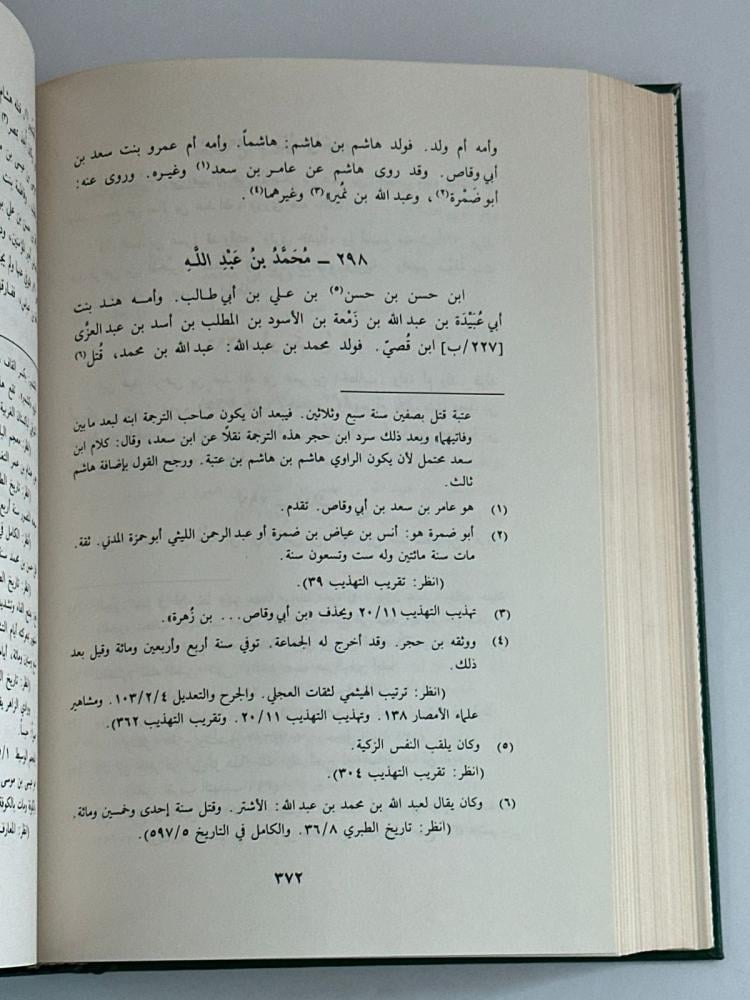 وأمه أم ولد. فولد هاشم بن هاشم: هاشماً. وأمه أم عمرو بنت سعد بن
أبي وقاص. وقد روى هاشم عن عامر بن سعد(١) وغيره. وروى عنه:
أبو ضَمْرة(٢)، وعبد الله بن نُمير»(٣) وغيرهما(٤).
٢٩٨ ـ مُحَمَّدُ بنُ عَبْدِ اللَّهِ
ابن حسن بن حسن(٥) بن علي بن أبي طالب. وأمه هند بنت
أبي عُبَيْدَة بن عبد الله بن زَمْعة بن الأسود بن المطلب بن أسد بن عبد العزَّى
[٢٢٧/ب] ابن قُصيّ. فولد محمد بن عبد الله: عبد الله بن محمد، قُتل(٦)
عتبة قتل بصفين سنة سبع وثلاثين. فيبعد أن يكون صاحب الترجمة ابنه لبعد ما بين
وفاتيهما» وبعد ذلك سرد ابن حجر هذه الترجمة نقلاً عن ابن سعد، وقال: كلام ابن
سعد محتمل لأن يكون الراوي هاشم بن هاشم بن عتبة. ورجح القول بإضافة هاشم
ثالث.
(١) هو عامر بن سعد بن أبي وقاص. تقدم.
(٢) أبو ضمرة هو: أنس بن عياض بن ضمرة أو عبد الرحمن الليثي أبو حمزة المدني. ثقة.
مات سنة مائتين وله ست وتسعون سنة.
(انظر: تقريب التهذيب ٣٩).
(٣) تهذيب التهذيب ٢٠/١١ ويحذف «بن أبي وقاص... بن زُهرة».
(٤) ووثقه بن حجر. وقد أخرج له الجماعة. توفي سنة أربع وأربعين ومائة وقيل بعد
ذلك.
(انظر: ترتيب الهيثمي لثقات العجلي. والجرح والتعديل ١٠٣/٢/٤. ومشاهير
علماء الأمصار ١٣٨. وتهذيب التهذيب ٢٠/١١. وتقريب التهذيب ٣٦٢).
(٥) وكان يلقب النفس الزكية.
(انظر: تقريب التهذيب ٣٠٤).
(٦) وكان يقال لعبد الله بن محمد بن عبد الله: الأشتر. وقتل سنة إحدى وخمسين ومائة.
(انظر: تاريخ الطبري ٣٦/٨. والكامل في التاريخ ٥٩٧/٥).
٣٧٢